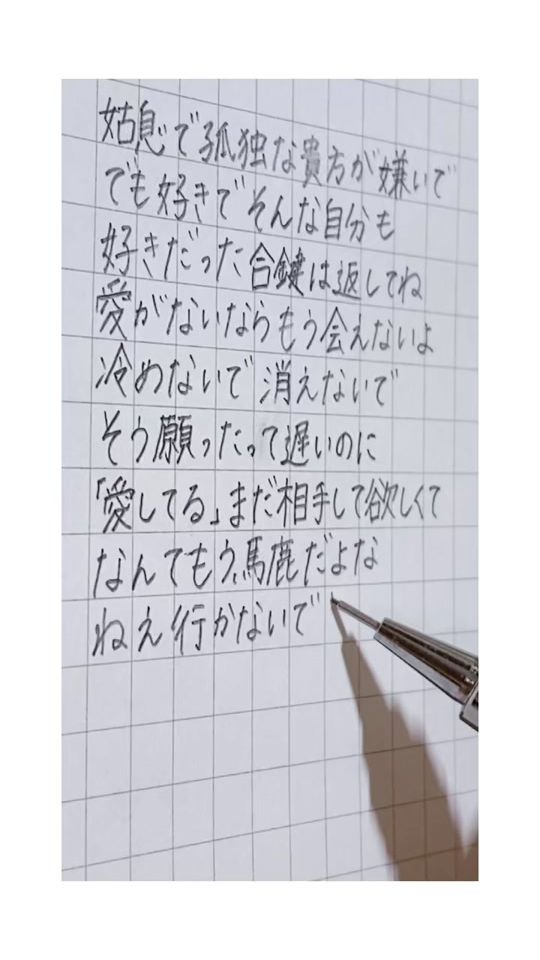 姑息で孤独な貴方が嫌いで
でも好きでそんな自分も
好きだった合鍵は返してね
愛がないならもう会えないよ
冷めないで消えないで
そう願ったって遅いのに
「愛してる」まだ相手して欲しくて
なんてもう、馬鹿だよな
ねえ行かないで